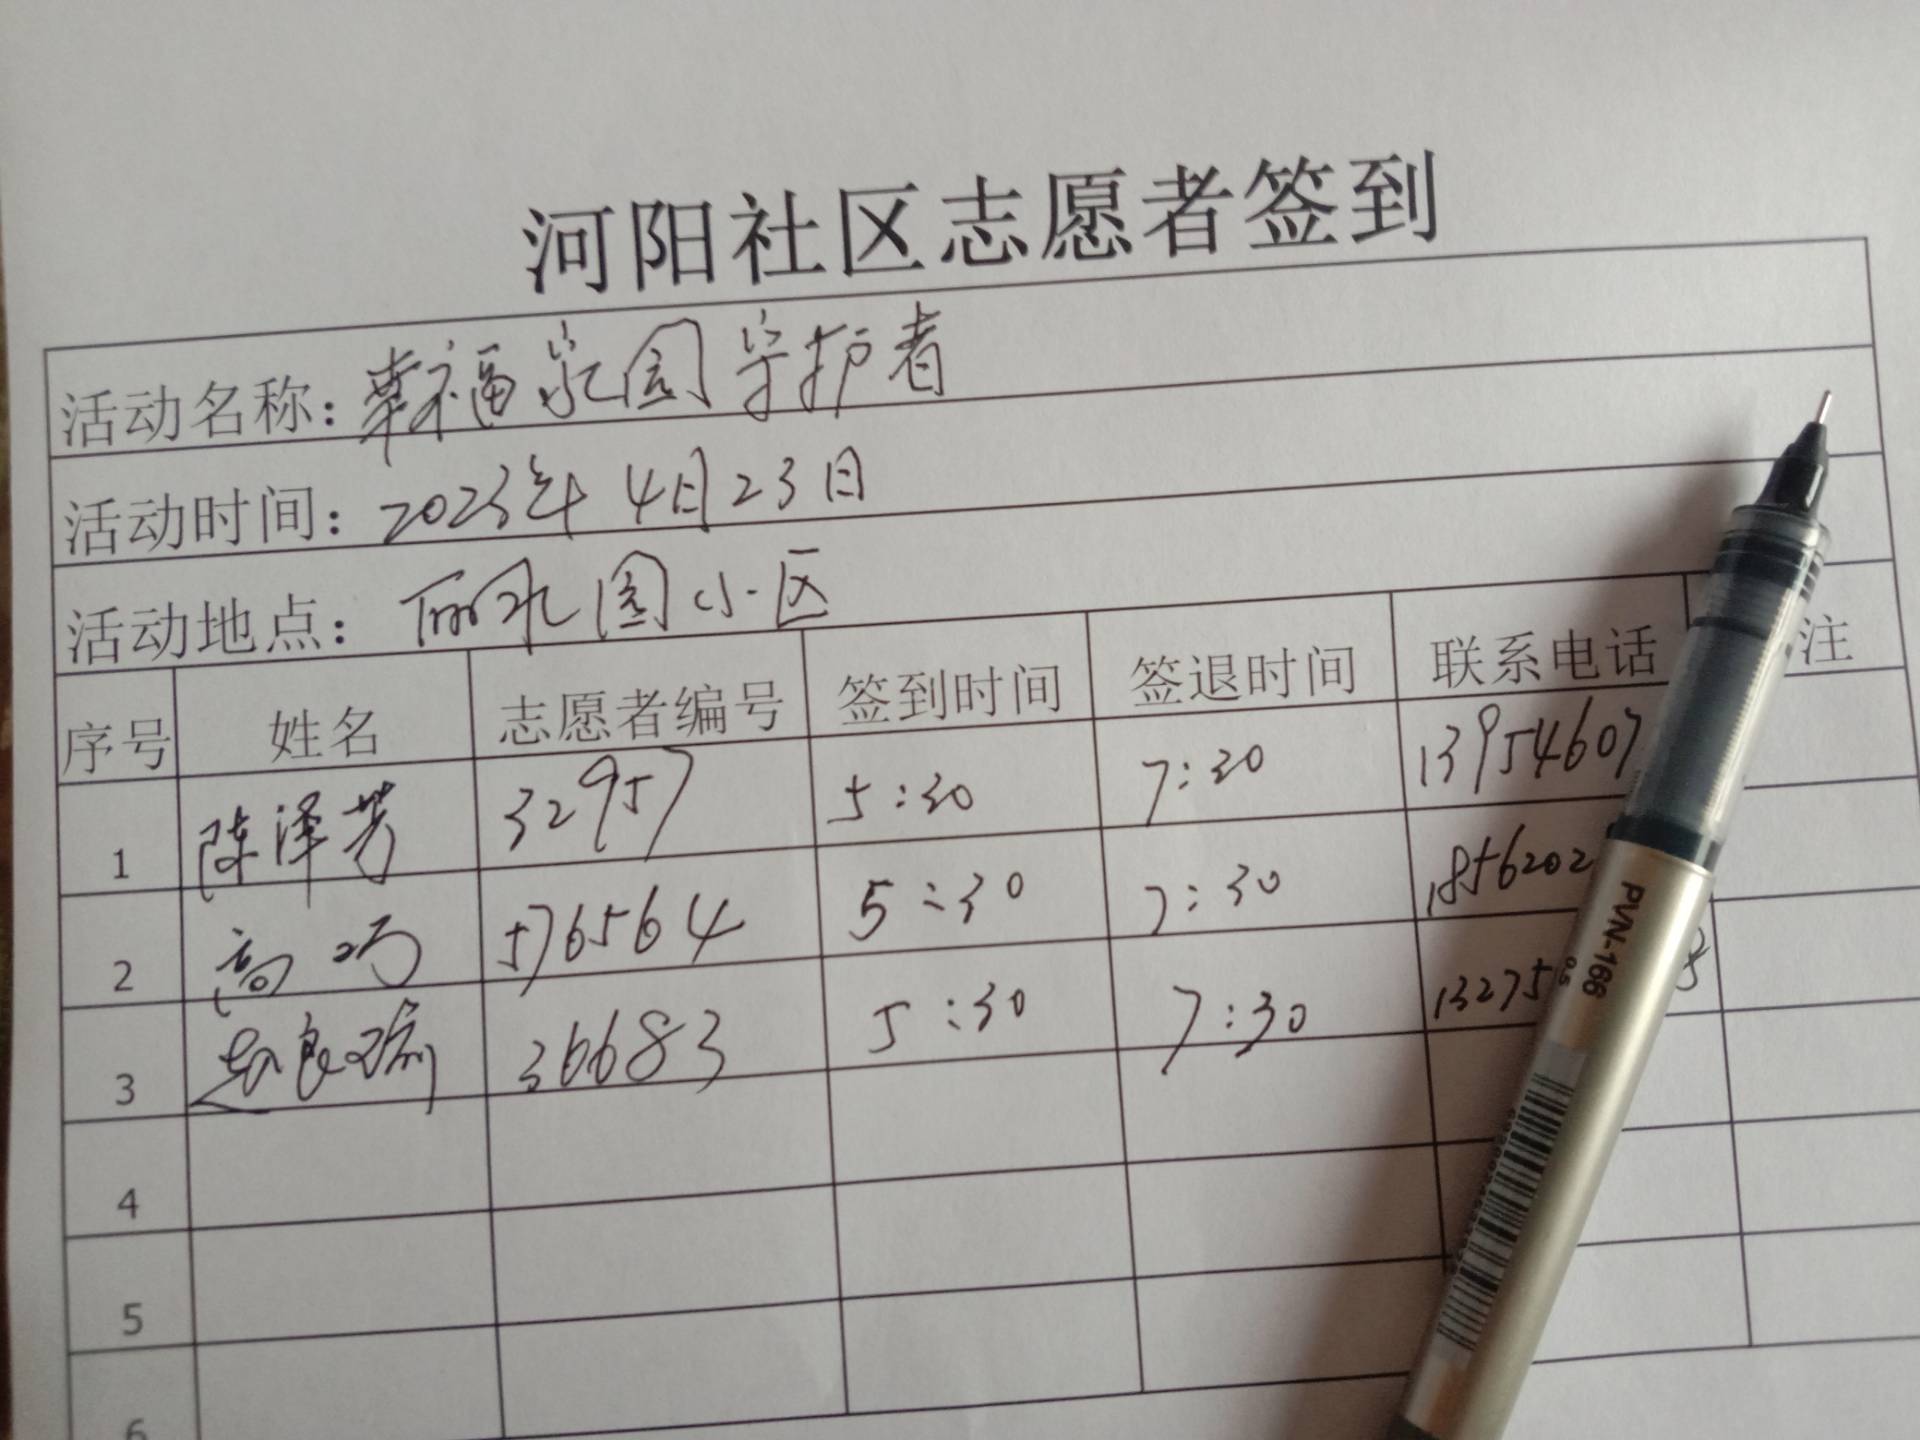 河阳社区志愿者签到
活动名称：幸福家园守护者
活动时间：2023年4月23日
活动地点：丽水园小区
序号 姓名 志愿者编号 签到时间 签退时间 联系电话 注
1 陈泽芳 32957 5:30 7:30 13954607
2 高巧 576564 5:30 7:30 1856202
3 赵良瑜 36683 5:30 7:30 13275 8
4
5
6
PVN-166
0.5